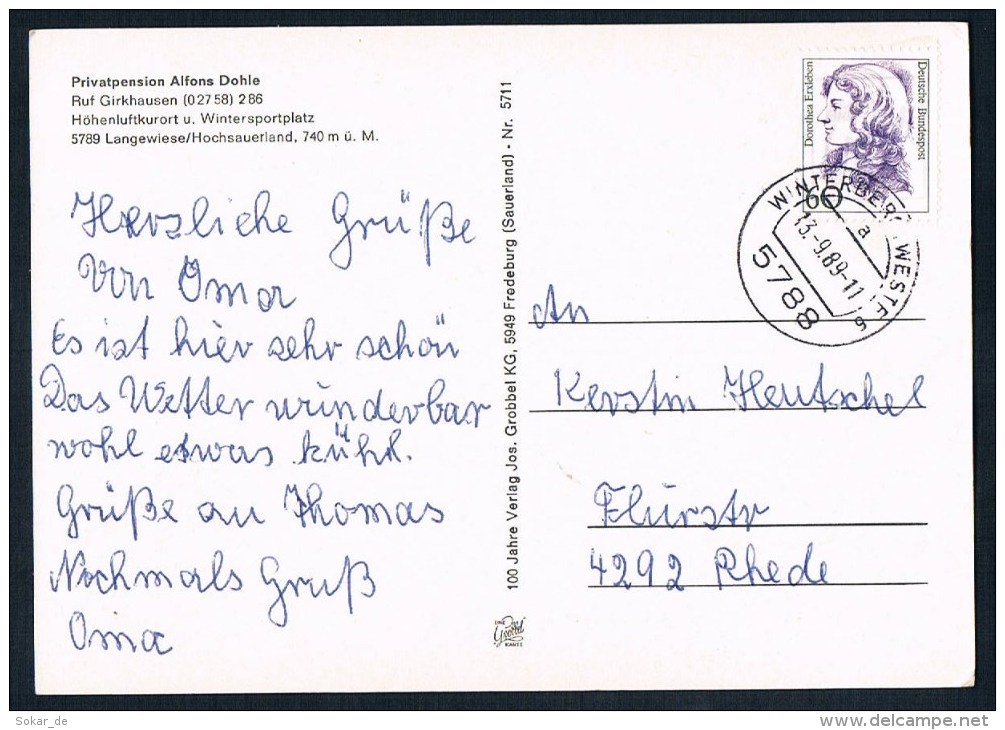 Privatpension Alfons Dohle
Ruf Girkhausen (02758) 286
Höhenluftkurort u. Wintersportplatz
5789 Langewiese/Hochsauerland, 740 m ü. M.
Herzliche Grüße
Von Oma
Es ist hier sehr schön
Das Wetter wunderbar
wohl etwas kühl.
Grüße an Thomas
Nochmals Gruß
Oma
100 Jahre Verlag Jos. Grobbel KG, 5949 Fredeburg (Sauerland) · Nr. 5711
Dorothea Erxleben
Deutsche Bundespost
60
WINTERBERG, WESTF 5
a
13.-9.89-11
5788
An
Kerstin Hentschel
Flurstr
4292 Rhede
Sokar_de
www.delcampe.net